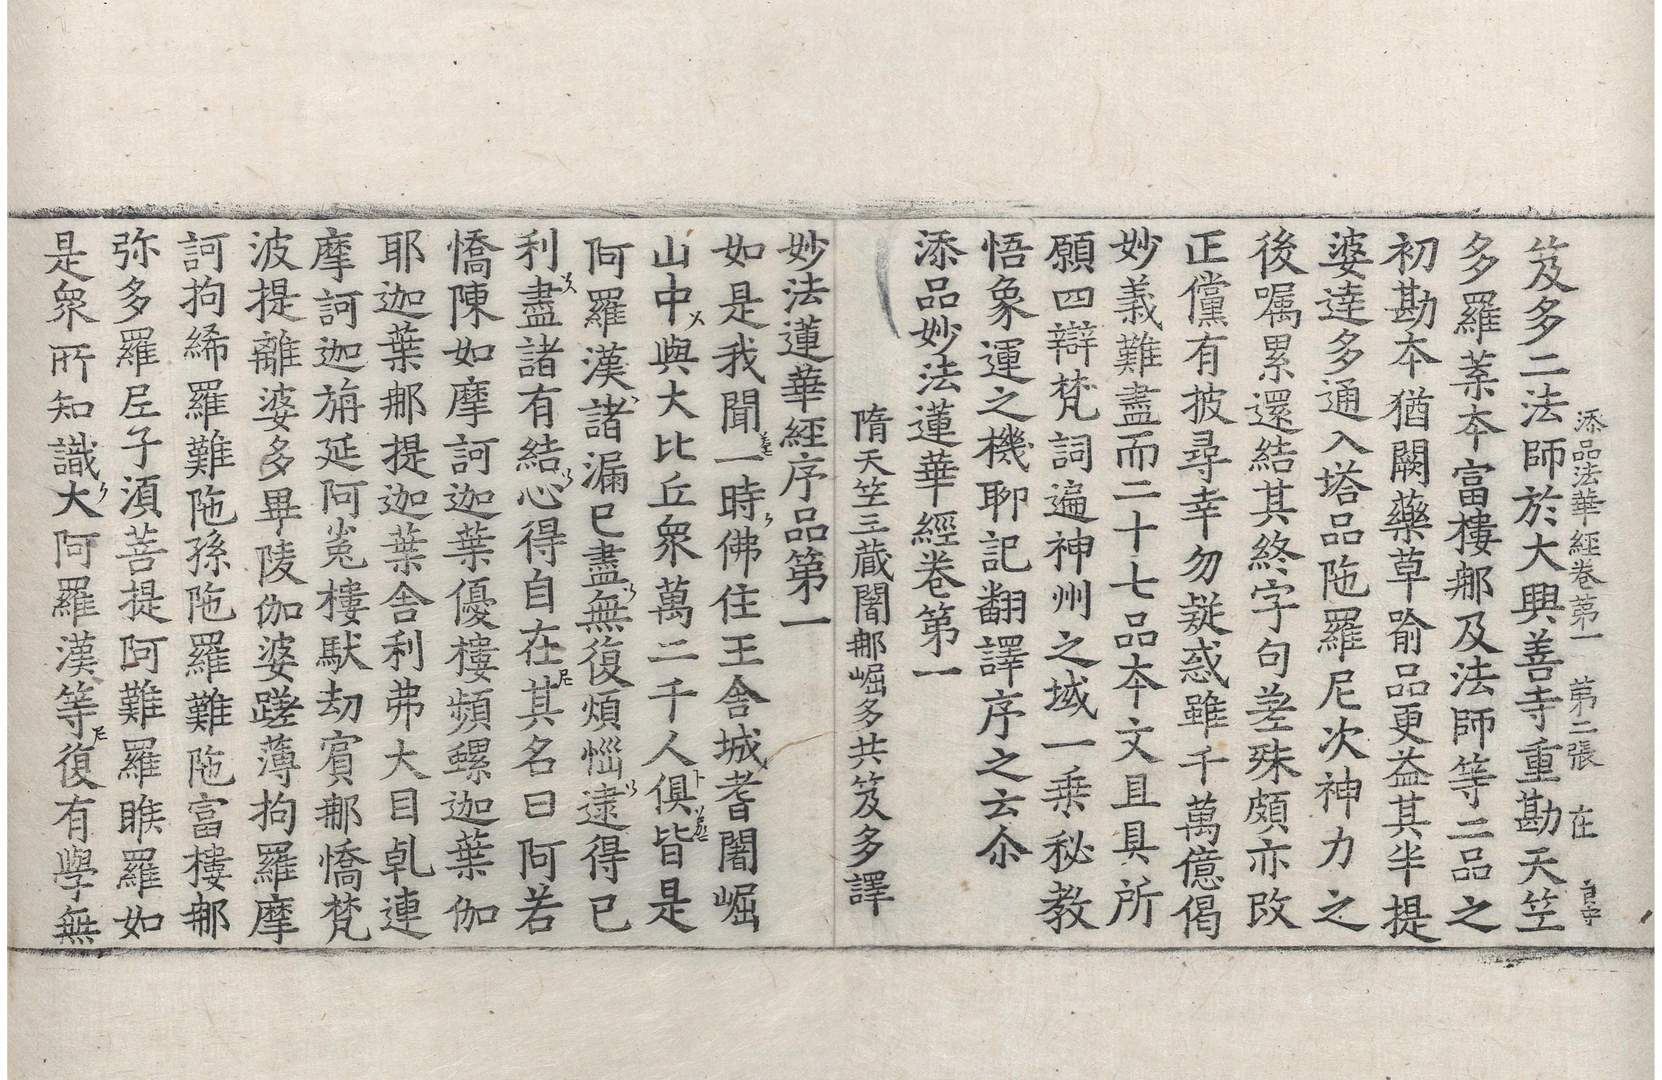 添品法華經卷第一　第二張　在
笈多二法師於大興善寺重勘天竺
多羅葉本富樓那及法師等二品之
初勘本猶闕藥草喻品更益其半提
婆達多通入塔品陁羅尼次神力之
後嘱累還結其終字句差殊頗亦改
正儻有披尋幸勿疑惑雖千萬億偈
妙義難盡而二十七品本文且具所
願四辯梵詞遍神州之域一乘秘教
悟象運之機聊記翻譯序之云尒
添品妙法蓮華經卷第一
隋天竺三藏闍那崛多共笈多譯
妙法蓮華經序品第一
如是我聞一時佛住王舍城耆闍崛
山中與大比丘衆萬二千人俱皆是
阿羅漢諸漏已盡無復煩惱逮得已
利盡諸有結心得自在其名曰阿若
憍陳如摩訶迦葉優樓頻螺迦葉伽
耶迦葉那提迦葉舍利弗大目乹連
摩訶迦旃延阿㝹樓馱劫賓那憍梵
波提離婆多畢陵伽婆蹉薄拘羅摩
訶拘絺羅難陁孫陁羅難陁富樓那
弥多羅尼子湏菩提阿難羅睺羅如
是衆所知識大阿羅漢等復有學無